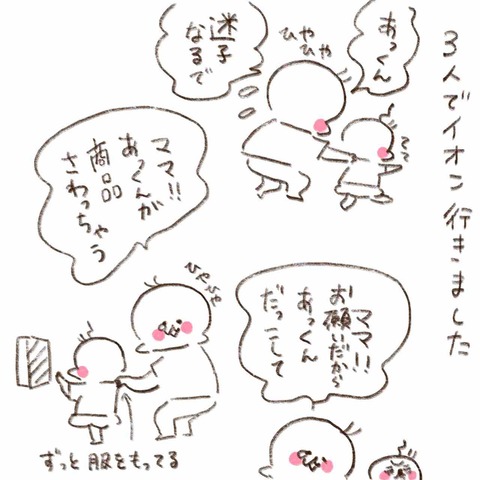 3人でイオン行きました
あっくん
迷子
なるで
ひやひや
てて
ママ!!
あっくんが
商品
さわっちゃう
ひやひや
ずっと服をもってる
ママ!!
お願いだから
あっくん
だっこして